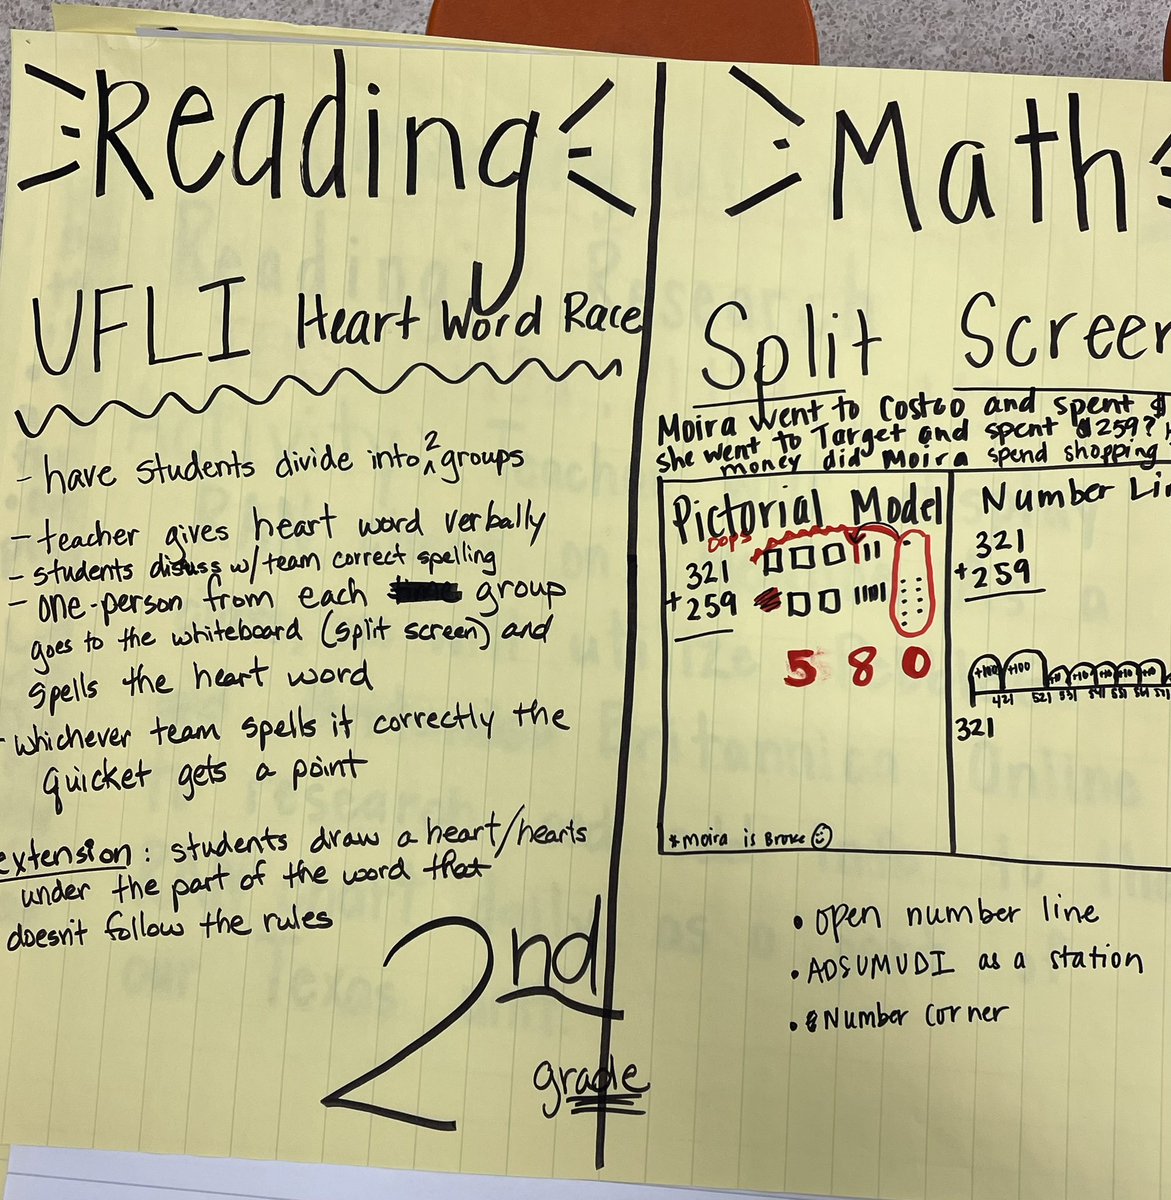 Reading
UFLI Heart Word Race
- have students divide into 2 groups
- teacher gives heart word verbally
- students discuss w/team correct spelling
- one-person from each group
goes to the whiteboard (split screen) and
spells the heart word
- whichever team spells it correctly the
quicket gets a point
extension: students draw a heart/hearts
under the part of the word that
doesn't follow the rules
2nd
grade
Math
Split Screen
Moira went to Costco and spent $
she went to Target and spent $259?
money did Moira spend shopping
Pictorial Model
oops
321
+ 259
5 8 0
*moira is Broke
Number Lin
321
+ 259
+100 +100 +10 +10 +10 +10 +10
421 521 531 541 551 561 571
321
• open number line
• ADSUMUDI as a station
• Number corner